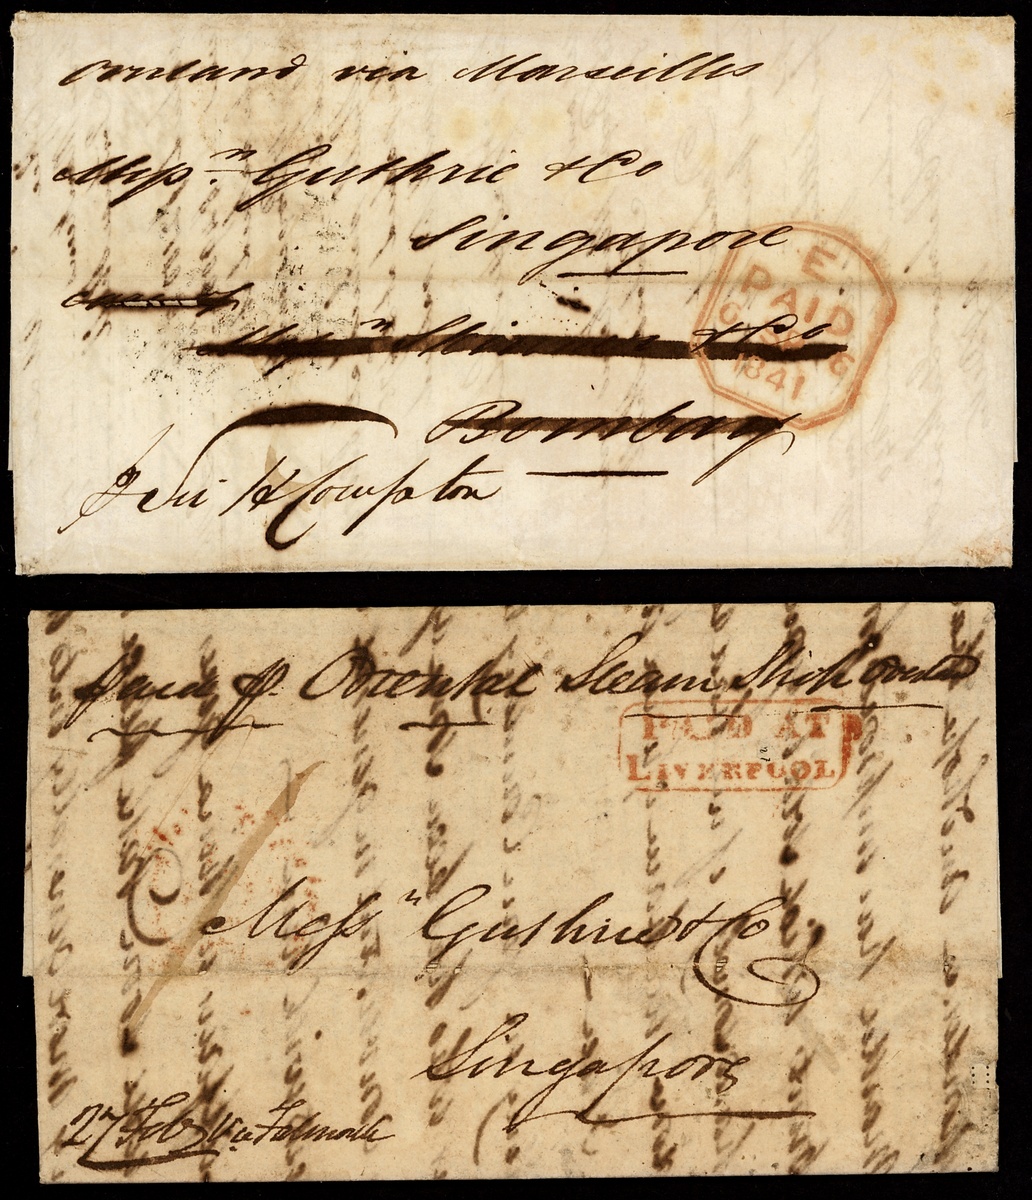 Overland via Marseilles
Messrs Guthrie & Co
Singapore
care of
Messrs & Co
Bombay
p Sir H Compton
E
PAID
1841
Paid p. Oriental Steam Ship overld
PAID AT
LIVERPOOL
Messrs Guthrie & Co
Singapore
27 Feby Via Falmouth